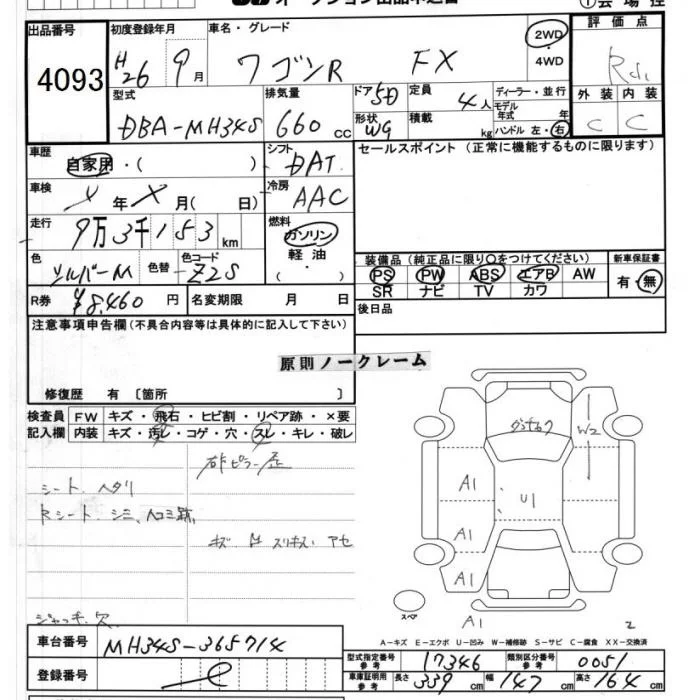 出品番号 初度登録年月 車名・グレード 2WD 評価点
4093 H26 9月 ワゴンR FX 4WD
型式 排気量 ドア 5D 定員 4人 ディーラー・並行 外装 内装
DBA-MH34S 660cc 形状 WG 積載 kg モデル年式 年 C C
ハンドル 左・右
車歴 自家用・( ) シフト DAT セールスポイント (正常に機能するものに限ります)
車検 年 月( 日) 冷房 AAC
走行 9万3千153km 燃料 ガソリン
軽油
( ・ )
色 シルバーM 色替 色コード Z2S 装備品 (純正品に限り○をつけてください) 新車保証書
PS PW ABS エアB AW 有・無
SR ナビ TV カワ
R券 ¥8,460円 名変期限 月 日 後日品
注意事項申告欄(不具合内容等は具体的に記入して下さい)
原則ノークレーム
修復歴 有 〔箇所 〕
検査員 FW キズ・飛石・ヒビ割・リペア跡・×要
記入欄 内装 キズ・汚レ・コゲ・穴・スレ・キレ・破レ
シート ヘタリ
A1 W2
U1
A1
A1
スペア
A1 2
ジャッキ 穴
A-キズ E-エクボ U-凹み W-補修跡 S-サビ C-腐食 XX-交換済
車台番号 MH34S-365714
型式指定番号 参考 17346 類別区分番号 参考 0051
登録番号
車庫証明用 参考 長さ 339cm 幅 147cm 高さ 164cm